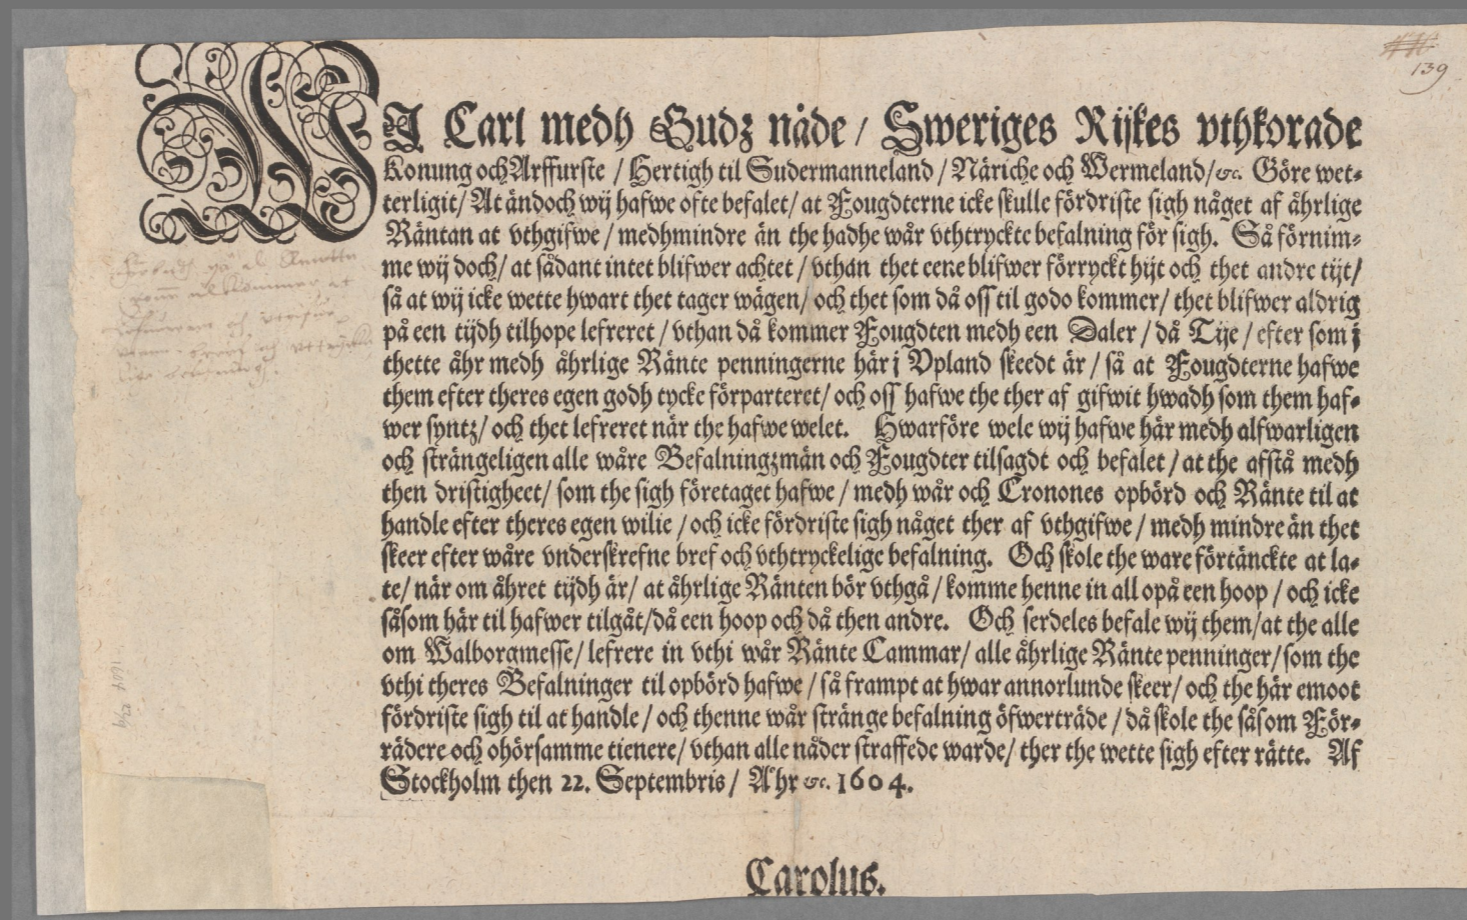 139
WJ Carl medh Gudz nåde / Sweriges Rijkes vthkorade
Konung och Arffurste / Hertigh til Sudermanneland / Näriche och Wermeland/ &c. Göre wet-
terligit/ At ändoch wij hafwe ofte befalet/ at Fougdterne icke skulle fördriste sigh någet af åhrlige
Räntan at vthgifwe / medhmindre än the hadhe wår vthtryckte befalning för sigh. Så förnim-
me wij doch/ at sådant intet blifwer achtet / vthan thet eene blifwer förryckt hijt och thet andre tijt/
så at wij icke wette hwart thet tager wägen/ och thet som då oss til godo kommer/ thet blifwer aldrig
på een tijdh tilhope lefreret / vthan då kommer Fougdten medh een Daler / då Tije / efter som j
thette åhr medh åhrlige Ränte penningerne här j Vpland skeedt är / så at Fougdterne hafwe
them efter theres egen godh tycke förparteret/ och oss hafwe the ther af gifwit hwadh som them haf-
wer syntz/ och thet lefreret när the hafwe welet. Hwarföre wele wij hafwe här medh alfwarligen
och strängeligen alle wåre Befalningzmän och Fougdter tilsagdt och befalet / at the afstå medh
then dristigheet/ som the sigh företaget hafwe / medh wår och Cronones opbörd och Ränte til at
handle efter theres egen wilie / och icke fördriste sigh någet ther af vthgifwe / medh mindre än thet
skeer efter wåre vnderskrefne bref och vthtryckelige befalning. Och skole the ware förtänckte at la-
te/ när om åhret tijdh är/ at åhrlige Ränten bör vthgå / komme henne in all opå een hoop / och icke
såsom här til hafwer tilgåt/ då een hoop och då then andre. Och serdeles befale wij them/ at the alle
om Walborgmesse/ lefrere in vthi wår Ränte Cammar/ alle åhrlige Ränte penninger/ som the
vthi theres Befalninger til opbörd hafwe / så frampt at hwar annorlunde skeer/ och the här emoot
fördriste sigh til at handle / och thenne wår stränge befalning öfwerträde / då skole the såsom För-
rädere och ohörsamme tienere/ vthan alle nåder straffede warde/ ther the wette sigh efter rätte. Af
Stockholm then 22. Septembris / Åhr &c. 1604.
Carolus.